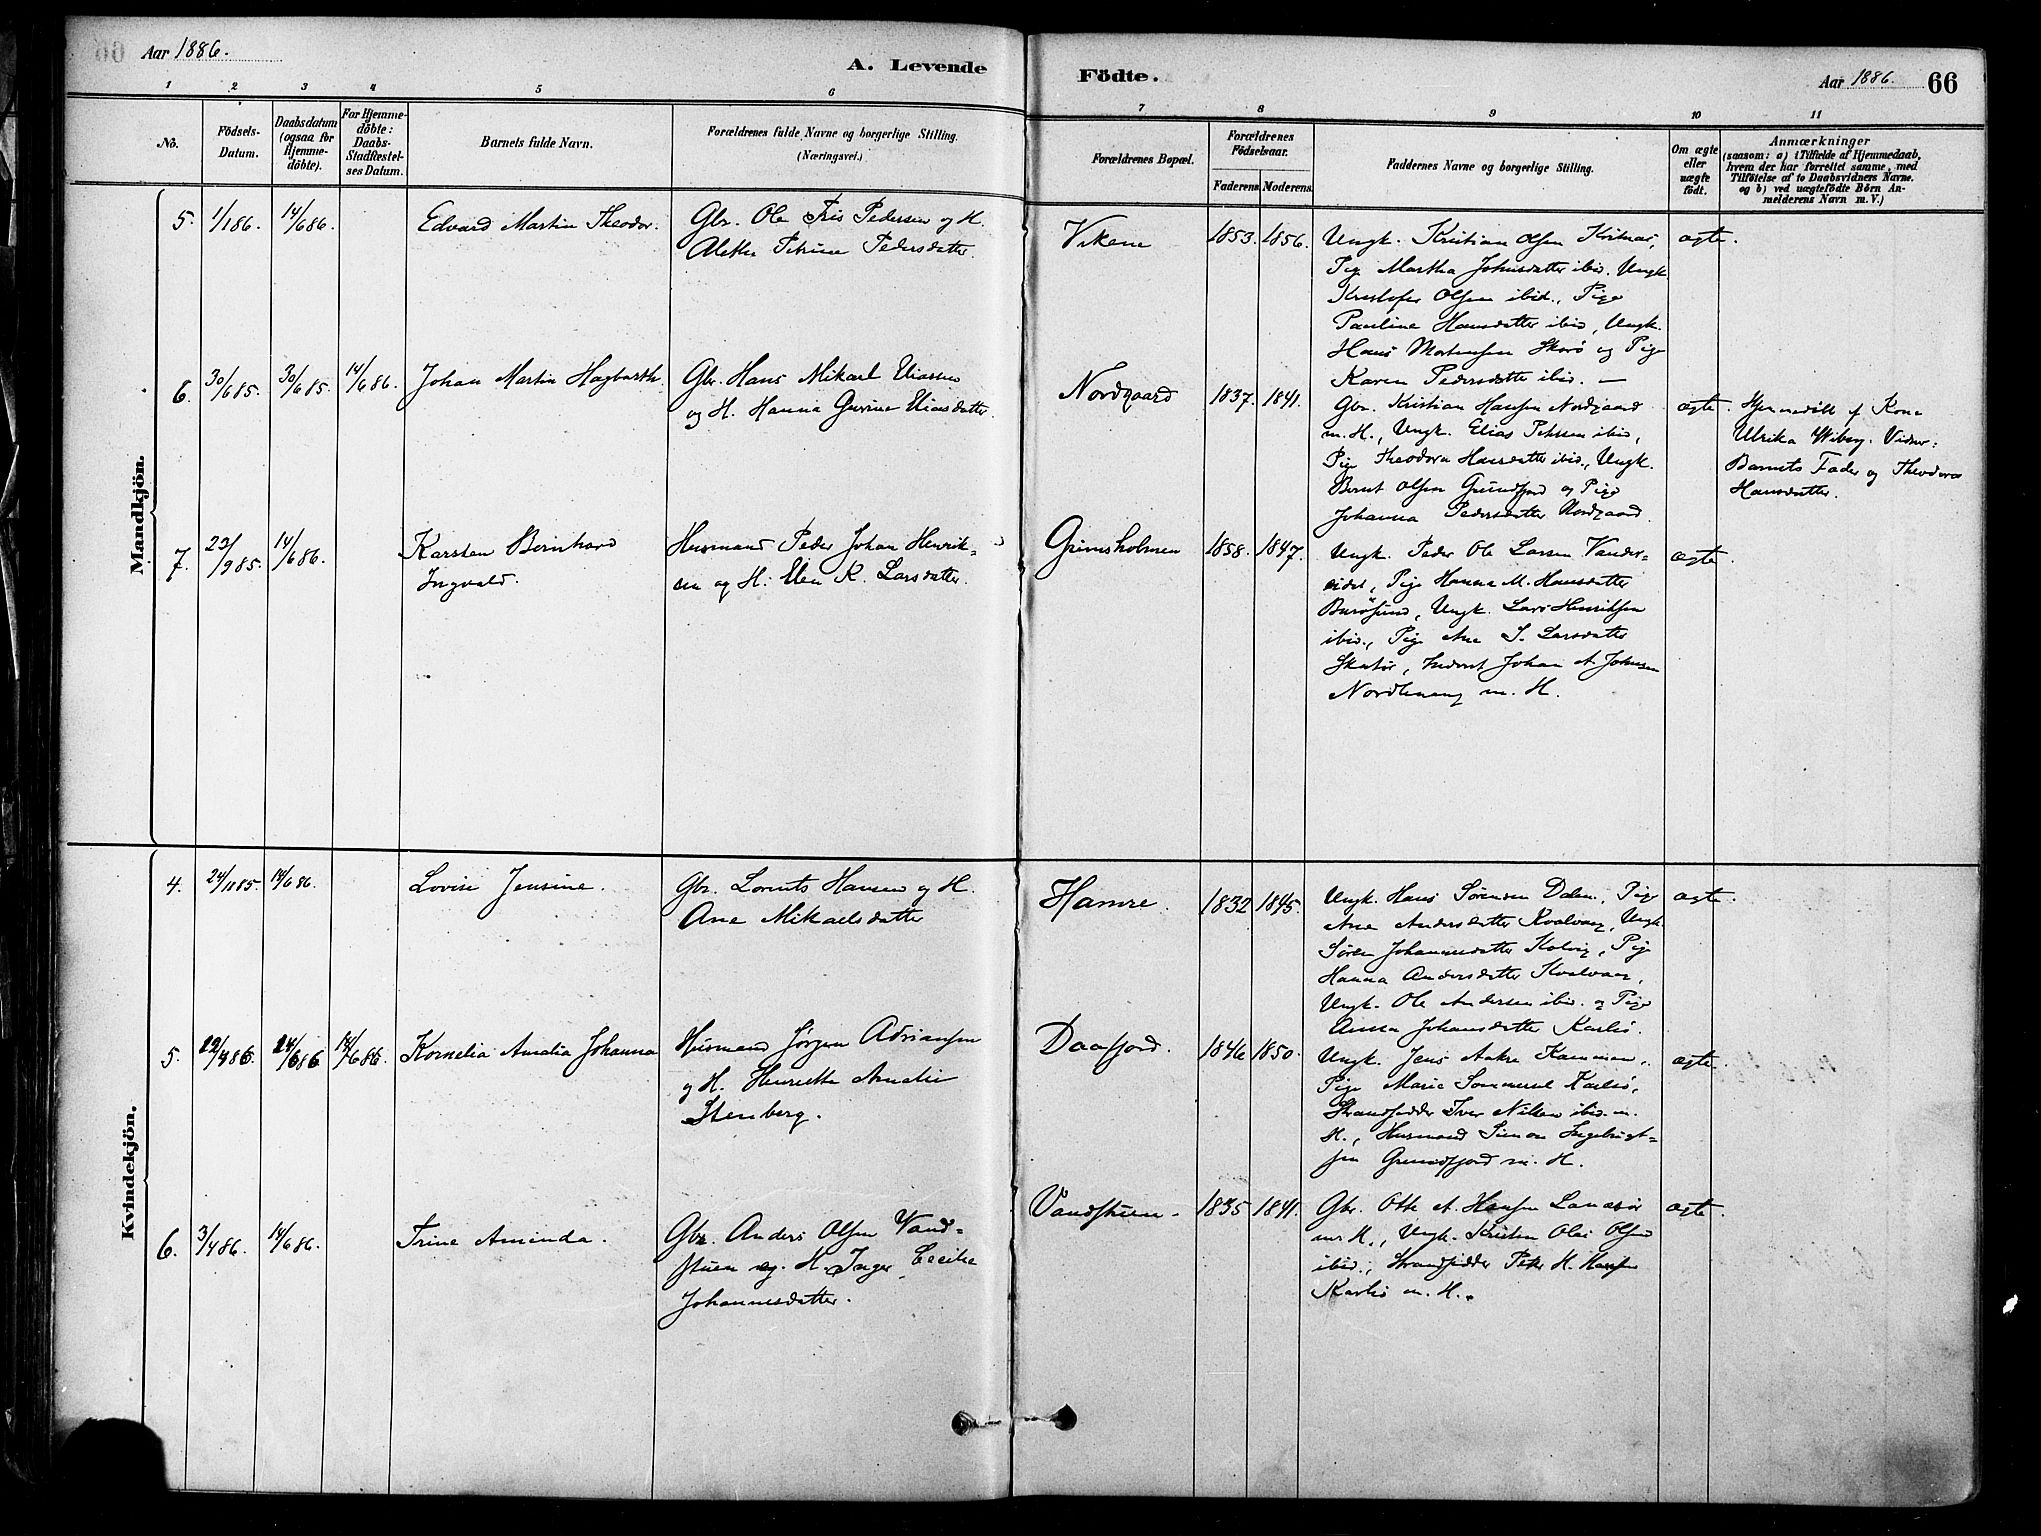 66 Aar 1886.
A. Levende
Födte.
Aar 1886. 66
1 2 3 4 5 6
7 8 9 10 11
No.
Födsels-
Datum.
Daabsdatum
(ogsaa for
Hjemme-
döbte).
For Hjemme-
döbte:
Daabs-
Stadfæstel-
ses Datum.
Barnets fulde Navn.
Forældrenes fulde Navne og borgerlige Stilling.
(Næringsvei.)
Forældrenes Bopæl.
Forældrenes
Födselsaar.
Faderens. Moderens.
Faddernes Navne og borgerlige Stilling.
Om ægte
eller
uægte
födt.
Anmærkninger
(saasom: a) i Tilfælde af Hjemmedaab,
hvem der har forrettet samme, med
Tilföielse af to Daabsvidners Navne.
og b) ved uægtefödte Börn An-
melderens Navn m.V.)
Mandkjön.
5. 1/1 86. 14/6 86.
Edvard Martin Theodor.
Gbr. Ole Pedersen og H.
Petrine Pedersdatter.
Vikene
1853. 1856.
Ungk. Kristian Olsen
Pige Martha Johnsdatter ibid. Ungk.
Kristofer Olsen ibid., Pige
Pauline Hansdatter ibid, Ungk.
Hans Mortensen Skorö og Pige
Karen Pedersdatter ibid. —
ægte.
6. 30/6 85. 30/6 85. 14/6 86.
Johan Martin Hagbarth
Gbr. Hans Mikael Eliassen
og H. Hanna Gurine Eliasdatter.
Nordgaard
1837. 1841.
Gbr. Kristian Hansen Nordgaard
m. H., Ungk. Elias Petersen ibid,
Pige Theodora Hansdatter ibid., Ungk.
Bernt Olsen Grundfjord og Pige
Johanna Pedersdatter Nordgaard.
ægte.
Hjemmedöbt af Kone
Ulrika Wiberg. Vidner:
Barnets Fader og Theodora
Hansdatter.
7. 23/9 85. 14/6 86.
Karsten Bernhard
Ingvald.
Husmand Peder Johan Henrik-
sen og H. Elen K. Larsdatter.
Grimsholmen
1858. 1847.
Ungk. Peder Ole Larsen Vander-
eidet, Pige Hanna M. Hansdatter
Burösund, Ungk. Lars Henriksen
ibid., Pige Ane S. Larsdatter
Skatör, Inderst Johan A. Johnsen
m. H.
ægte.
Kvindekjön.
4. 24/11 85. 14/6 86.
Lovise Jensine.
Gbr. Lorents Hansen og H.
Ane Mikaelsdatter
Hamre.
1832 1845.
Ungk. Hans Sörensen Dalen, Pige
Ane Andersdatter Kvalvaag, Ungk.
Sören Johannesdatter Kolvig, Pige
Hanna Andersdatter Kvalvaag,
Ungk. Ole Andersen ibid. og Pige
Anna Johansdatter Karlsö.
ægte.
5. 14/6 86.
Kornelia Amalia Johanna
Husmand Jørgen Adriansen
og H. Henriette Amalie
Stenberg.
Daafjord.
1846 1850.
Ungk. Jens Aakre
Pige Marie Karlsö,
Strandsidder Iver Nilsen ibid. m.
H., Husmand Simon Ingebrigt-
sen Grundfjord m. H.
ægte.
6. 3/4 86. 14/6 86.
Trine Aminda.
Gbr. Anders Olsen Vand-
stuen og H. Inger Cecilie
Johannesdatter.
Vandstuen
1835 1841.
Gbr. Otte A. Hansen
m. H., Ungk. Kristen Olai Olsen
ibid., Strandsidder Peter H. Hansen
Karlsö m. H.
ægte.